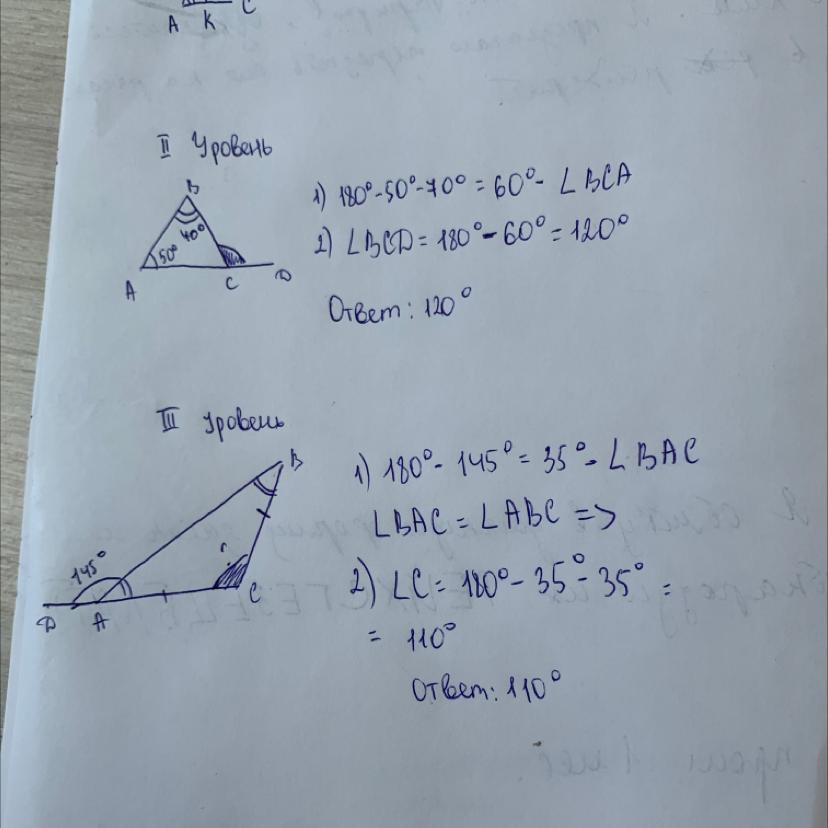 A K C
II Уровень
B
40°
50°
A C D
1) 180°-50°-70° = 60° - ∠BCA
2) ∠BCD = 180° - 60° = 120°
Ответ: 120°
III Уровень
B
145°
D A C
1) 180° - 145° = 35° - ∠BAC
∠BAC = ∠ABC =>
2) ∠C = 180° - 35° - 35° =
= 110°
Ответ: 110°